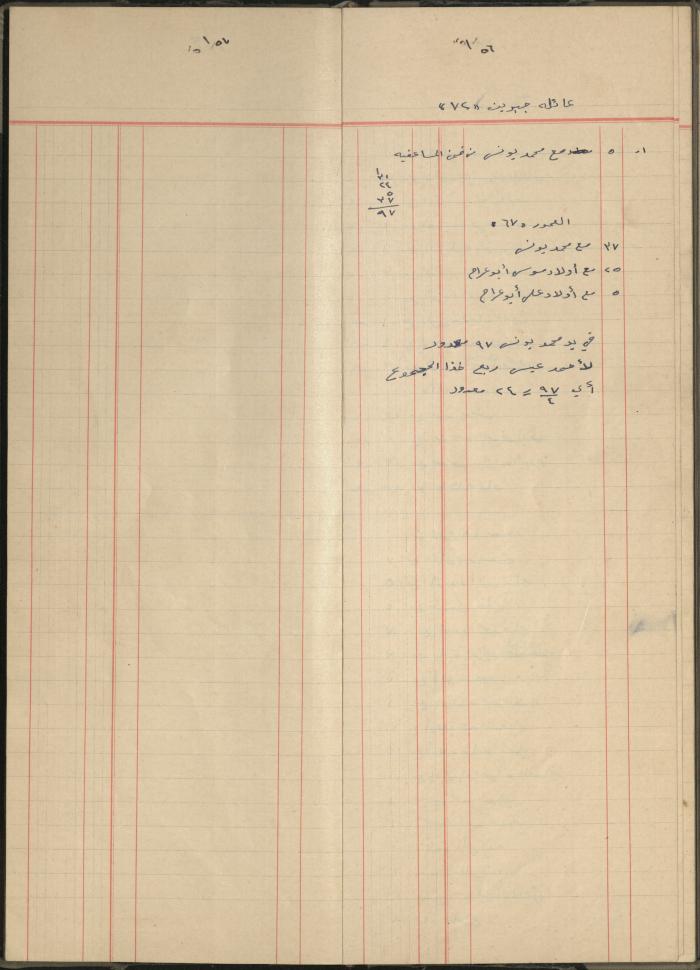 ٥٦
عائلة جبرين «٧٢»
٥ مع محمد يونس من
٢٢
٥
٩٧
العمور «٦٧»
٣٧ مع محمد يونس
٢٥ مع أولاد موسى أبو عرام
٥ مع أولاد علي أبو عرام
في يد محمد يونس ٩٧ معدود
لأحمد عيسى ربع هذا المجموع
أي ٩٧/٤ = ٢٤ معدود
٥٦